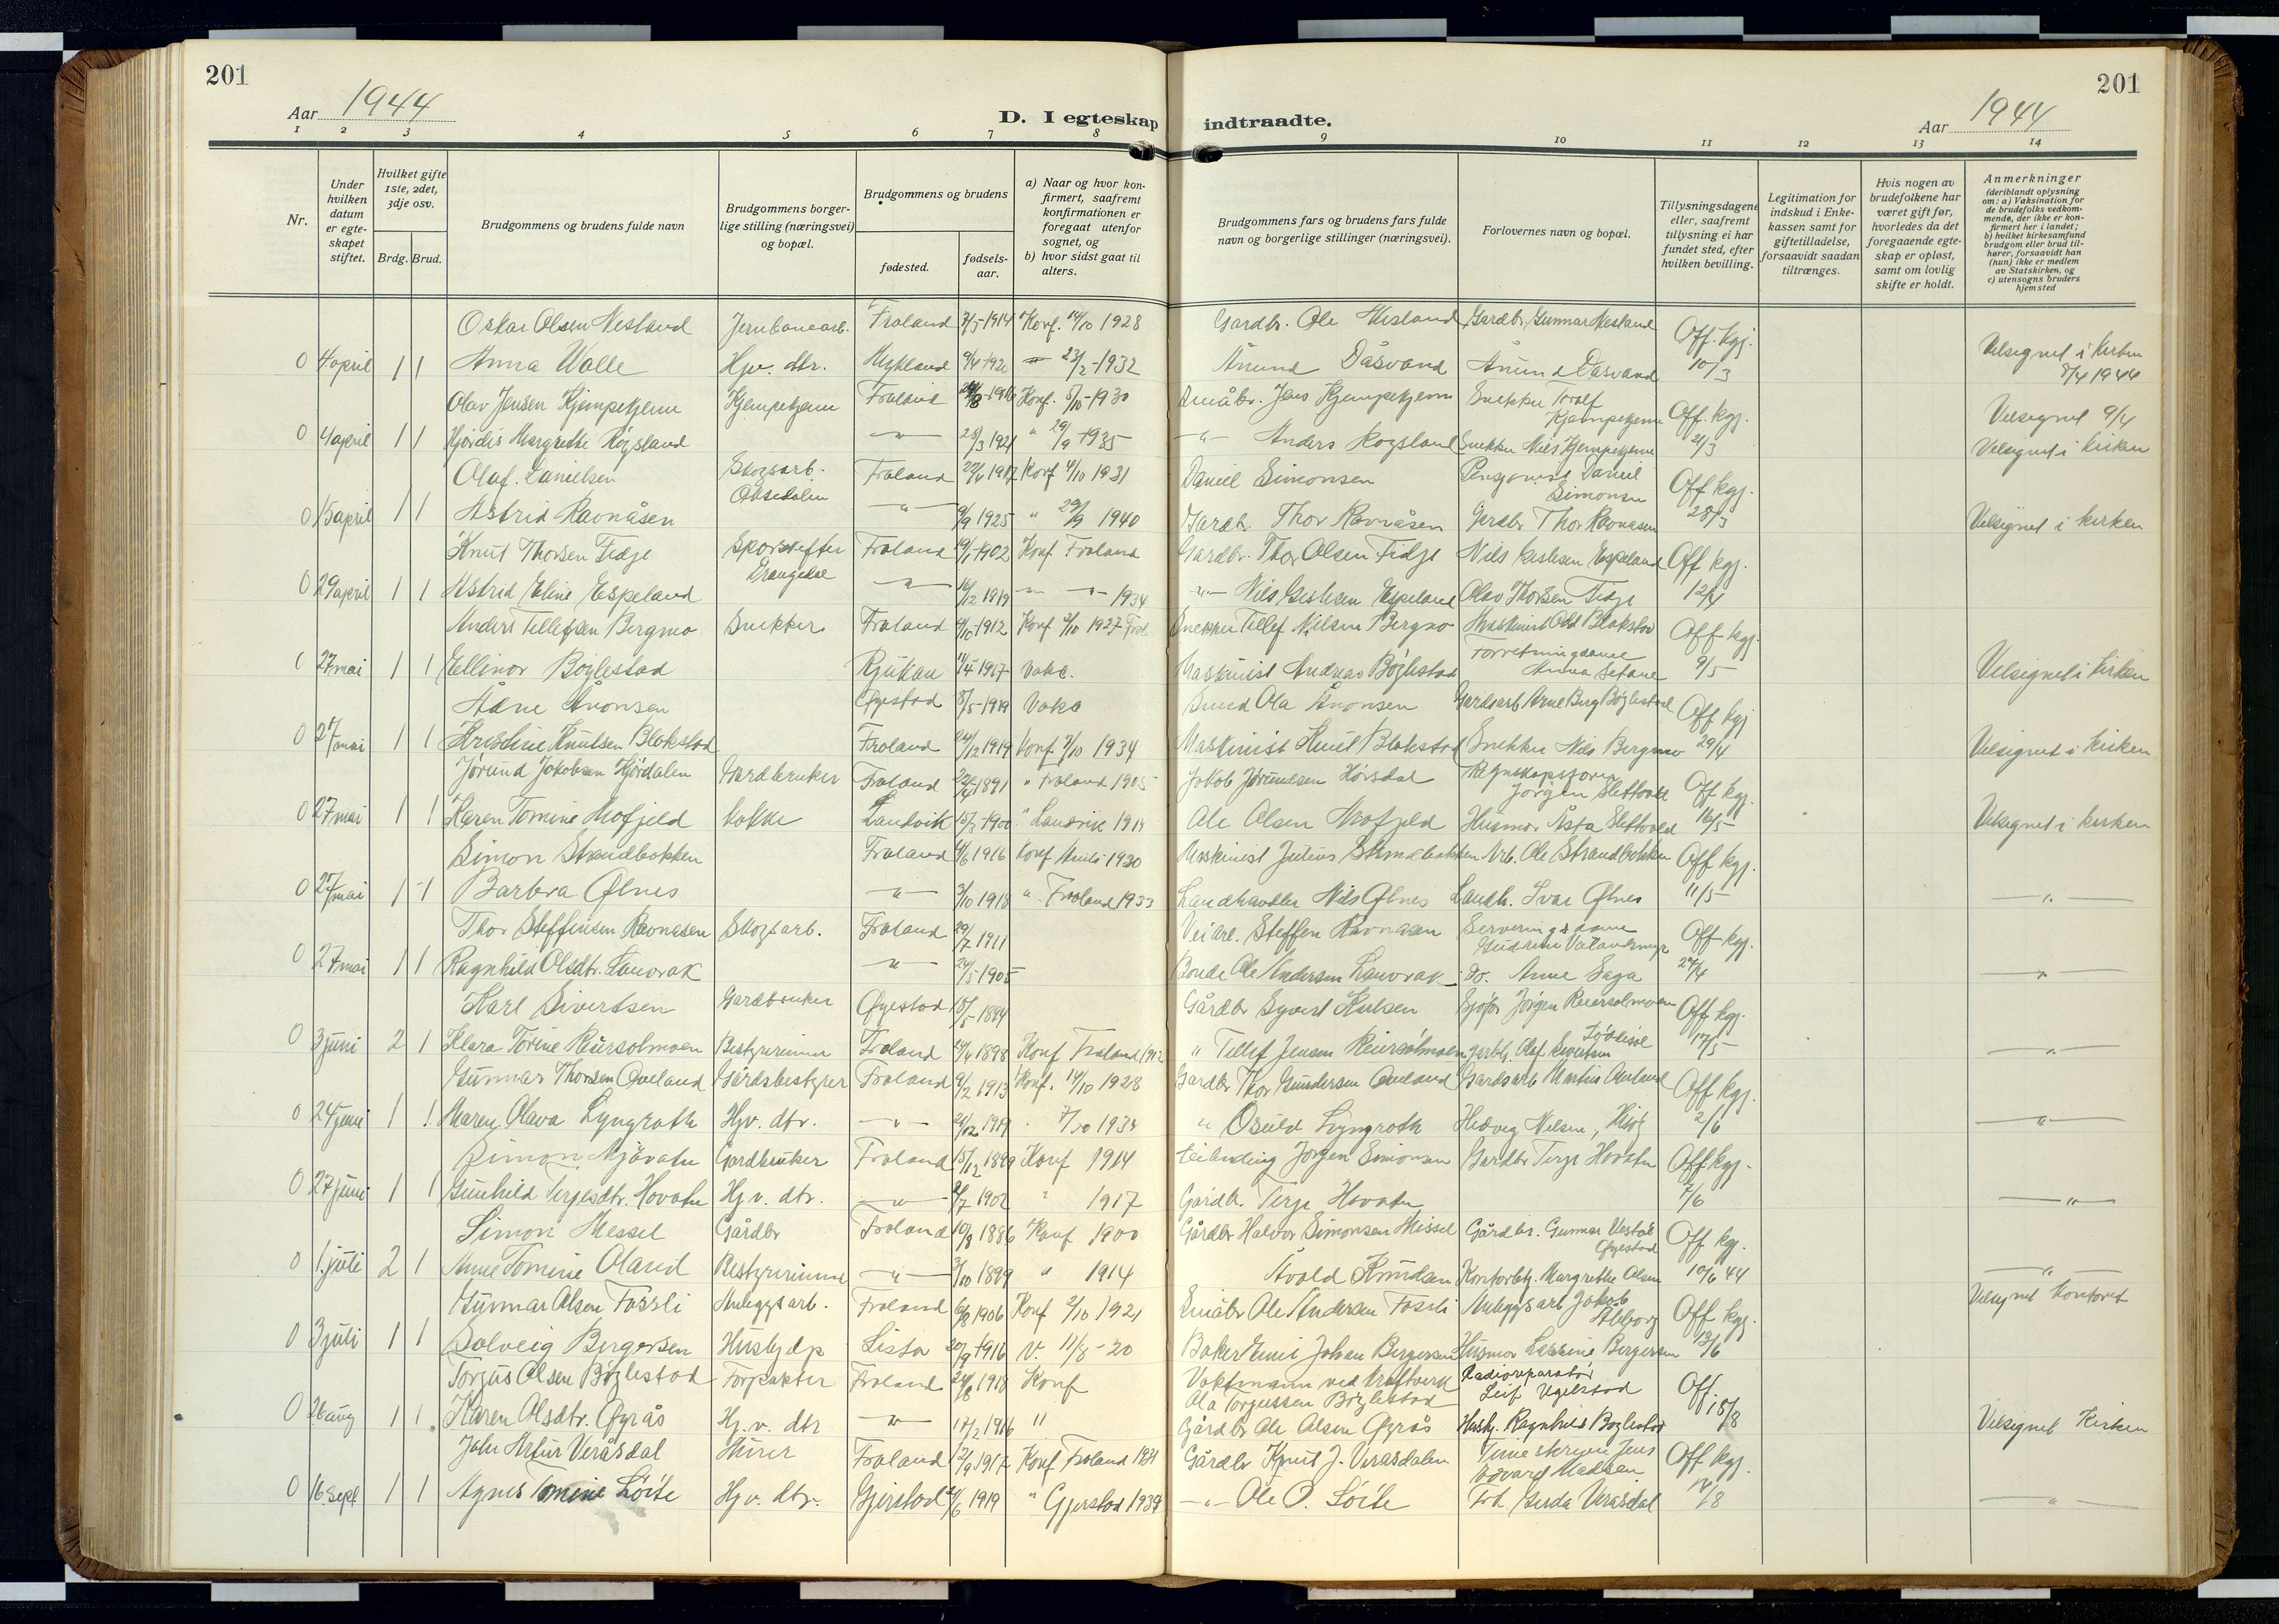 201
201
Aar 1944
D. I egteskap indtraadte.
Aar 1944
1 2 3 4 5 6 7 8 9 10 11 12 13 14
Nr.
Under hvilken datum er egte-skapet stiftet.
Hvilket gifte 1ste, 2det, 3dje osv.
Brdg. Brud.
Brudgommens og brudens fulde navn
Brudgommens borger-lige stilling (næringsvei) og bopæl.
Brudgommens og brudens
fødested.
fødsels-aar.
a) Naar og hvor kon-firmert, saafremt konfirmationen er foregaat utenfor sognet, og
b) hvor sidst gaat til alters.
Brudgommens fars og brudens fars fulde navn og borgerlige stillinger (næringsvei).
Forlovernes navn og bopæl.
Tillysningsdagene eller, saafremt tillysning ei har fundet sted, efter hvilken bevilling.
Legitimation for indskud i Enke-kassen samt for giftetilladelse, forsaavidt saadan tiltrænges.
Hvis nogen av brudefolkene har været gift før, hvorledes da det foregaaende egte-skap er opløst, samt om lovlig skifte er holdt.
Anmerkninger
(deriblandt oplysning om: a) Vaksination for de brudefolks vedkom-mende, der ikke er kon-firmert her i landet; b) hvilket kirkesamfund brudgom eller brud til-hører, forsaavidt han (hun) ikke er medlem av Statskirken, og c) utensogns bruders hjemsted
Oskar Olsen Mesland Jernbanearb. Froland 7/5-1914 Konf. 14/10 1928 Gardbr. Ole Mesland Gardbr. Gunnar Mesland Off. kgj.
0 4 april 1 1 Anna Walle Hjv. dtr. Mykland 9/4-192 23/2-1932 Ånund Dåsvand Ånund Dåsvand 10/3 Velsignet i kirken 8/4 1944
Olav Jensen Kjempekjenn Kjempekjenn Froland 1916 Konf. 5/10-1930 Småbr. Jens Kjempekjenn Snekker Torolf Kjempekjenn Off. kgj. Velsignet 9/4
0 4 april 1 1 Hjørdis Margrethe Røysland -"- 28/3 1921 " 29/9 1935 -"- Anders Røysland Snekker Nils Kjempekjenn 21/3 Velsignet i kirken
Olaf. Danielsen Skogsarb. Froland 22/4 1917 Konf 4/10 1931 Daniel Simonsen Pensjonist Daniel Simonsen Off kgj.
0 15 april 1 1 Astrid Ravnåsen -"- 9/9 1925 " 29/9 1940 Gardb. Thor Ravnåsen Gardbr Thor Ravnåsen 28/3 Velsignet i kirken
Knut Thorsen Fidje Sporskifter Froland 19/1-1902 Konf Froland Gardbr. Thor Olsen Fidje Nils Espeland Off kgj.
0 29 april 1 1 Astrid Eline Espeland -"- 16/12 1919 -"- 1934 -"- Nils Espeland Olav Thorsen Fidje 12/4
Anders Tellefsen Bergmo Snekker Froland 4/10-1912 Konf 2/10 1927 Snekker Tellef Nilsen Bergmo Maskinist Odd Blakstad Off kgj.
27 mai 1 1 Ellinor Bøylestad Rjukan 11/4-1917 Vaks. Maskinist Andreas Bøylestad Forretningsdame Anna 9/5 Velsignet i kirken
Ånonsen Øyestad 8/5-1919 Vaks Ola Ånonsen Gardsarb Arne Berg Bøylestad Off kgj
0 27 mai 1 1 Kristine Knutsen Blakstad Froland 24/12 1919 Konf 7/10 1934 Maskinist Knut Blakstad Snekker Nils Bergmo 29/4 Velsignet i kirken
Jørund Jakobsen Hjørdalen Gardbruker Froland 1891 " Froland 1905 Jakob Jørundsen Regnskapsfører Jørgen Slettvold Off kgj.
0 27 mai 1 1 Karen Tomine Mofjeld Kokke Landvik 15/3 1900 " Landvik Ole Olsen Mofjeld Husmor Åsta Slettvold 16/5 Velsignet i kirken
Simon Strandbakken Froland 4/6 1916 Konf 1930 Maskinist Julius Strandbakken Arb. Ole Strandbakken Off kgj.
0 27 mai 1 1 Barbra Ølnes -"- 3/10 1918 " Froland 1933 Landhandler Nils Ølnes Landh. Ivar Ølnes 11/5 -"-
Thor Steffensen Ravnåsen Skogsarb. Froland 29/7 1911 Steffen Ravnåsen Serveringsdame Gudrun Off kgj.
0 27 mai 1 1 Ragnhild Olsdtr. Lauvrak -"- 24/5 1905 Bonde Ole Andersen Lauvrak do. Anne Saga 27/4 -"-
Karl Sivertsen Gardbruker Øyestad 18/5-1894 Gårdbr Syvert Jørgen Reiersølmoen Off kgj.
0 3 juni 2 1 Klara Torine Reiersølmoen Bestyrerinne Froland 14/4 1898 Konf Froland 1912 " Tellef Jensen Reiersølmoen Olaf Sivertsen 17/5 -"-
Gunnar Thorsen Oueland Gårdsbestyrer Froland 9/2 1913 Konf. 14/10 1928 Gardbr Thor Gundersen Oueland Gardsarb Martin Oueland Off kgj.
0 24 juni 1 1 Maren Olava Lyngroth Hjv. dtr. -"- 24/12 1919 7/10 1934 " Osuld Lyngroth Hedvig Nilsen, 2/6 -"-
Simon Mjåvatn Gardbruker Froland 15/12 1899 Konf 1914 Jørgen Simonsen Gardbr Terje Hovatn Off kgj.
0 27 juni 1 1 Gunhild Terjesdtr. Hovatn Hjv. dtr. -"- 2/7 1902 " 1917 Gardb. Terje Hovatn 7/6 -"-
Simon Messel Gårdbr Froland 10/8 1886 Konf 1900 Gårdbr Halvor Simonsen Messel Gårdbr. Gunnar Vestøl Øyestad Off kgj.
0 1. juli 2 1 Anne Tomine Oland Bestyrerinne -"- 3/10 1899 " 1914 Åvold Knudsen Kontorbtj. Margrethe Olsen 10/6 44 -"-
Gunnar Olsen Fossli Anleggsarb. Froland 6/8 1906 Konf 2/10 1921 Småbr Ole Andersen Fossli Anleggsarb Jakob Off kgj. Velsignet kontoret
0 3 juli 1 1 Solveig Bergersen Hushjelp Lista 20/9 1916 V. 11/8-20 Baker Emil Johan Bergersen Husmor Lassine Bergersen 13/6
Torjus Olsen Bøylestad Forpakter Froland 24/8 1918 Konf Vaktmann ved kraftverk Ola Torjussen Bøylestad Radioreparatør Leif Ugelstad Off.
0 26 aug 1 1 Karen Olsdtr. Øyrås Hj.v. dtr -"- 17/2 1916 " Gårdbr Ole Olsen Øyrås Hushj. Ragnhild Bøylestad 18/8 Velsignet Kirken
John Artur Veråsdal Murer Froland 12/9 1917 Konf Froland 1931 Gårdbr Knut J. Veråsdalen Jens Edvard Madsen Off kgj.
0 16 sept 1 1 Agnes Tomine Løite Hjv. dtr. Gjerstad 4/6 1919 " Gjerstad 1934 -"- Ole O. Løite Frk. Gerda Veråsdal 18/8 -"-